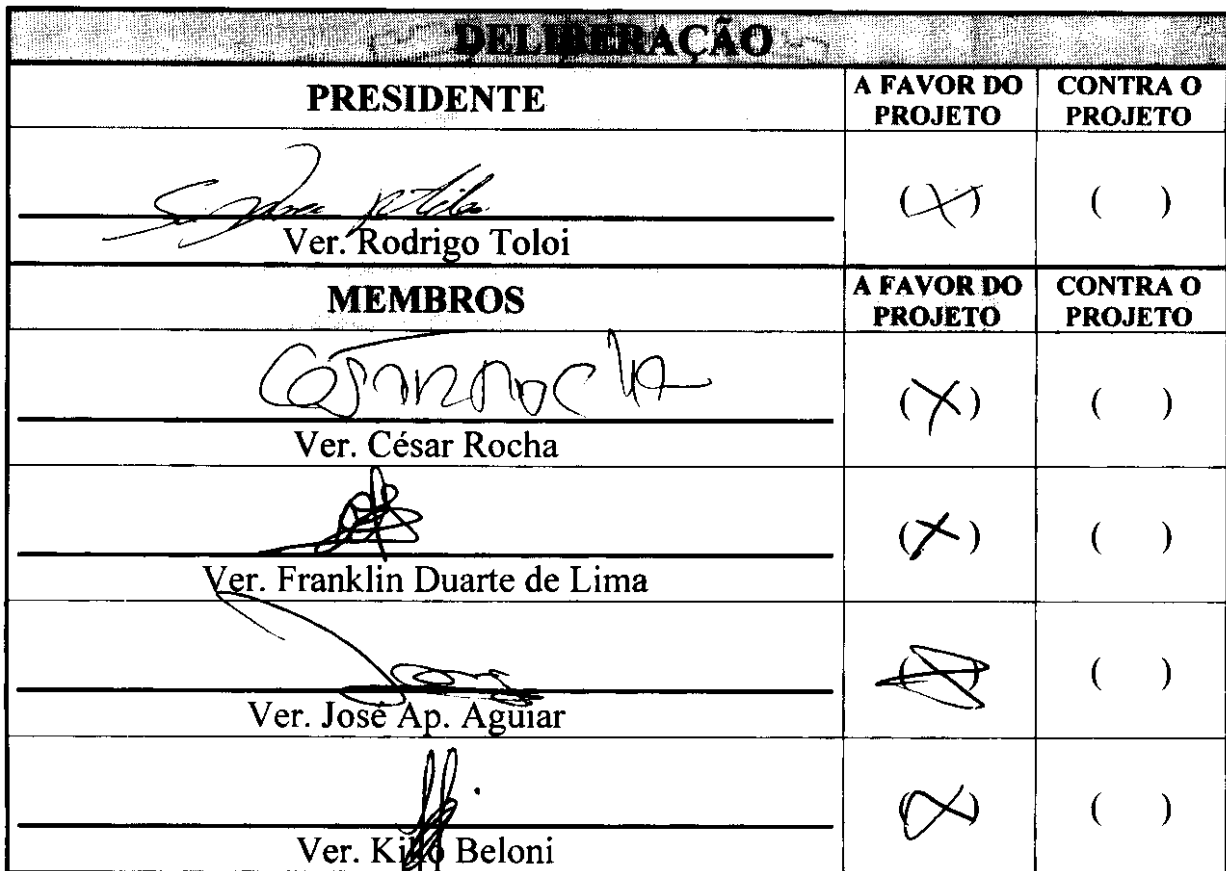 DELIBERAÇÃO
PRESIDENTE
A FAVOR DO PROJETO
CONTRA O PROJETO
(X)
( )
Ver. Rodrigo Toloi
MEMBROS
A FAVOR DO PROJETO
CONTRA O PROJETO
César Rocha
(X)
( )
Ver. César Rocha
(X)
( )
Ver. Franklin Duarte de Lima
(X)
( )
Ver. José Ap. Aguiar
(X)
( )
Ver. Beloni